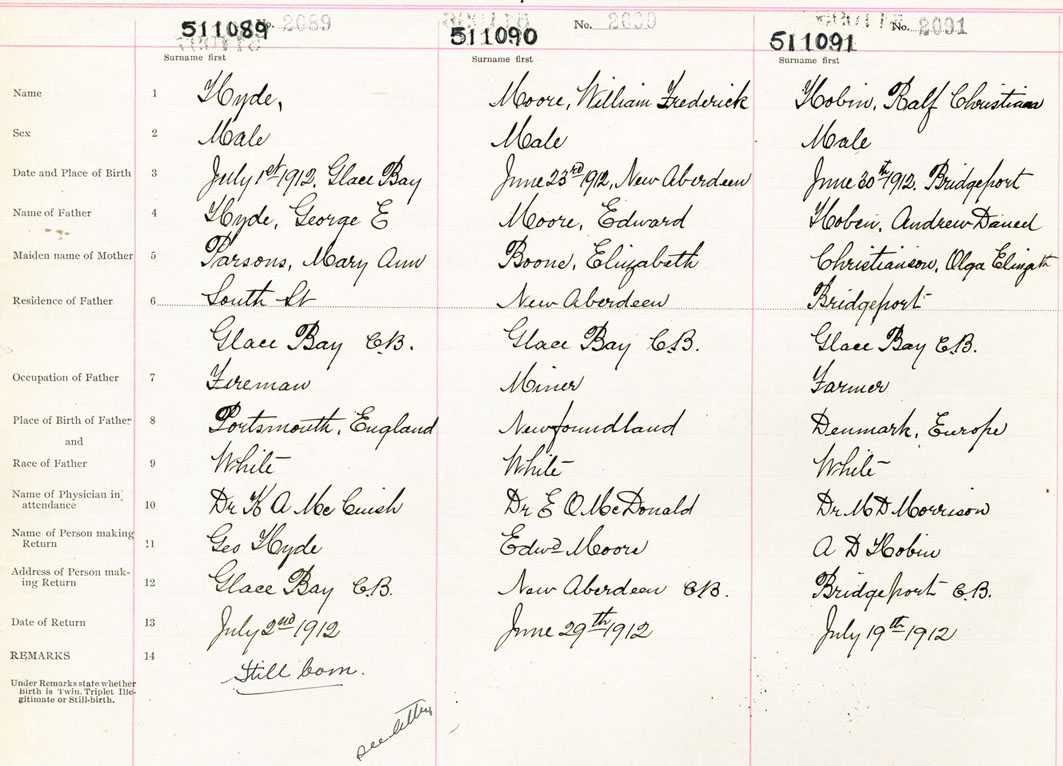 511089 No. 2089 511090 No. 2090 511091 No. 2091
Surname first Surname first Surname first
Name 1 Hyde, Moore, William Frederick Hobin, Ralf Christian
Sex 2 Male Male Male
Date and Place of Birth 3 July 1st 1912. Glace Bay June 23rd 1912, New Aberdeen June 30th 1912. Bridgeport
Name of Father 4 Hyde, George E Moore, Edward Hoben, Andrew
Maiden name of Mother 5 Parsons, Mary Ann Boone, Elizabeth Christianson, Olga
Residence of Father 6 South St New Aberdeen Bridgeport
Glace Bay C.B. Glace Bay C.B. Glace Bay C.B.
Occupation of Father 7 Fireman Miner Farmer
Place of Birth of Father 8 Portsmouth, England Newfoundland Denmark, Europe
and
Race of Father 9 White White White
Name of Physician in attendance 10 Dr K A McCuish Dr E O McDonald Dr M D Morrison
Name of Person making Return 11 Geo Hyde Edwd Moore A D Hobin
Address of Person making Return 12 Glace Bay C.B. New Aberdeen C.B. Bridgeport C.B.
Date of Return 13 July 2nd 1912 June 29th 1912 July 19th 1912
REMARKS 14 Still born.
Under Remarks state whether
Birth is Twin. Triplet Ille-
gitimate or Still-birth.
see letter